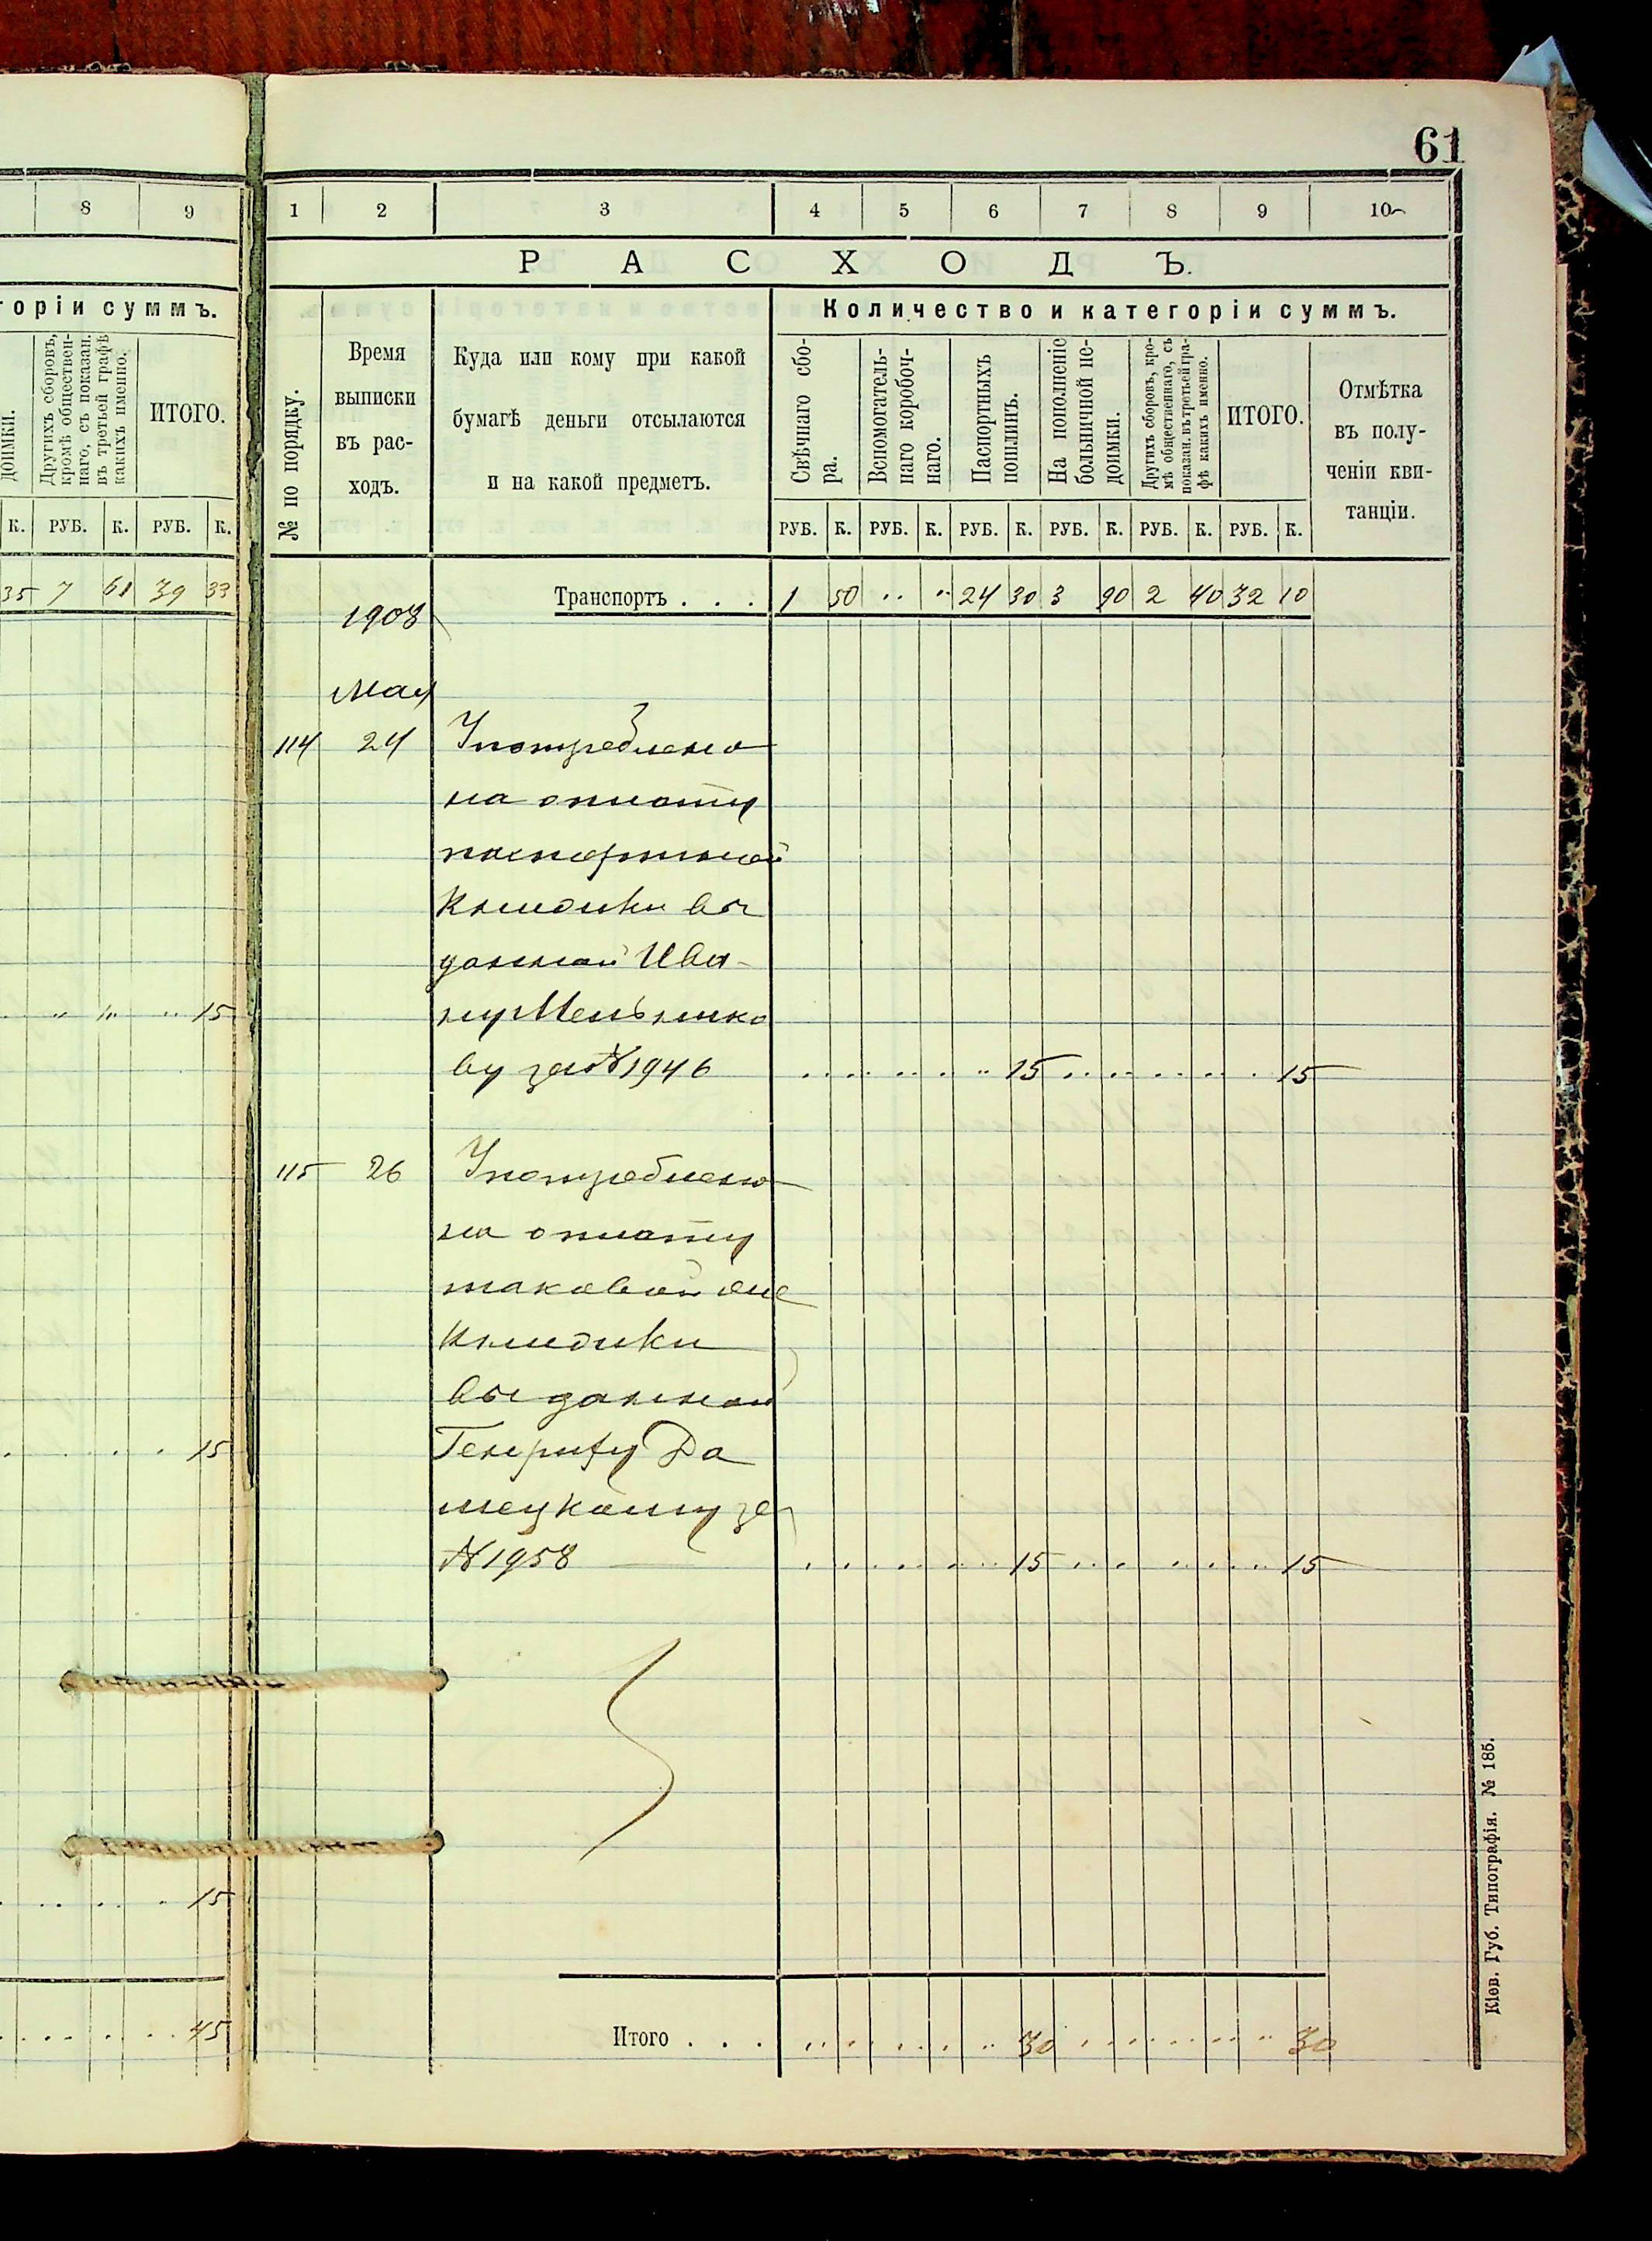 61
8 9
горіи суммъ.
доимки.
Другихъ сборовъ,
кромѣ обществен-
наго, съ показан.
въ третьей графѣ
какихъ именно.
ИТОГО.
К. РУБ. К. РУБ. К.
35 7 61 39 33
" " " 15
15
15
45
1 2 3 4 5 6 7 8 9 10
РАСХОДЪ.
№ по порядку.
Время
выписки
въ рас-
ходъ.
Куда или кому при какой
бумагѣ деньги отсылаются
и на какой предметъ.
Количество и категоріи суммъ.
Свѣчнаго сбо-
ра.
Вспомогатель-
наго коробоч-
наго.
Паспортныхъ
пошлинъ.
На пополненіе
больничной не-
доимки.
Другихъ сборовъ, кро-
мѣ общественнаго, съ
показан. въ третьей гра-
фѣ какихъ именно.
ИТОГО.
Отмѣтка
въ полу-
ченіи кви-
танціи.
РУБ. К. РУБ. К. РУБ. К. РУБ. К. РУБ. К. РУБ. К.
Транспортъ . . . 1 50 " " 24 30 3 90 2 40 32 10
1908
Мая
114 24 Употреблено
на оплату
паспортной
Книжки вы
данной Ива-
ну Мельнико
ву за № 1946 15 15
115 26 Употреблено
на оплату
таковой же
Книжки
выданной
Генриху Да
шецкому за
№ 1958 15 15
Итого . . . 30 30
Кіев. Губ. Типографія. № 185.